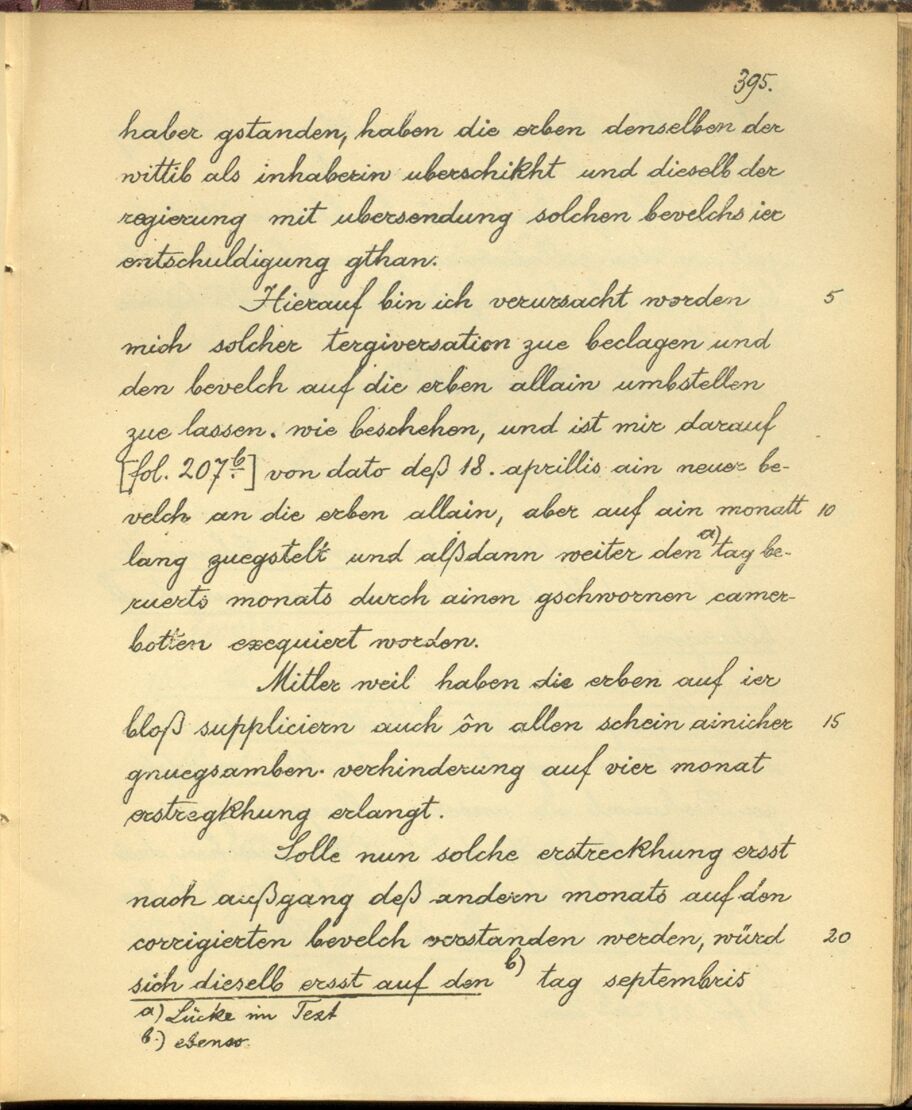 395.
haber gstanden, haben die erben denselben der
wittib als inhaberin uberschikht und dieselb der
regierung mit ubersendung solchen bevelchs ier
entschuldigung gthan.
Hierauf bin ich verursacht worden 5
mich solcher tergiversation zue beclagen und
den bevelch auf die erben allain umbstellen
zue lassen. wie beschehen, und ist mir darauf
[fol. 207b.] von dato deß 18. aprillis ain neuer be-
velch an die erben allain, aber auf ain monatt 10
lang zuegstelt und alßdann weiter den a) tag be-
ruerts monats durch ainen gschwornen camer-
botten exequiert worden.
Mitler weil haben die erben auf ier
bloß suppliciern auch ôn allen schein ainicher 15
gnuegsamben verhinderung auf vier monat
erstregkhung erlangt.
Solle nun solche erstreckhung ersst
nach außgang deß andern monats auf den
corrigierten bevelch verstanden werden, würd 20
sich dieselb ersst auf den b) tag septembris
a) Lücke im Text
b.) ebenso.